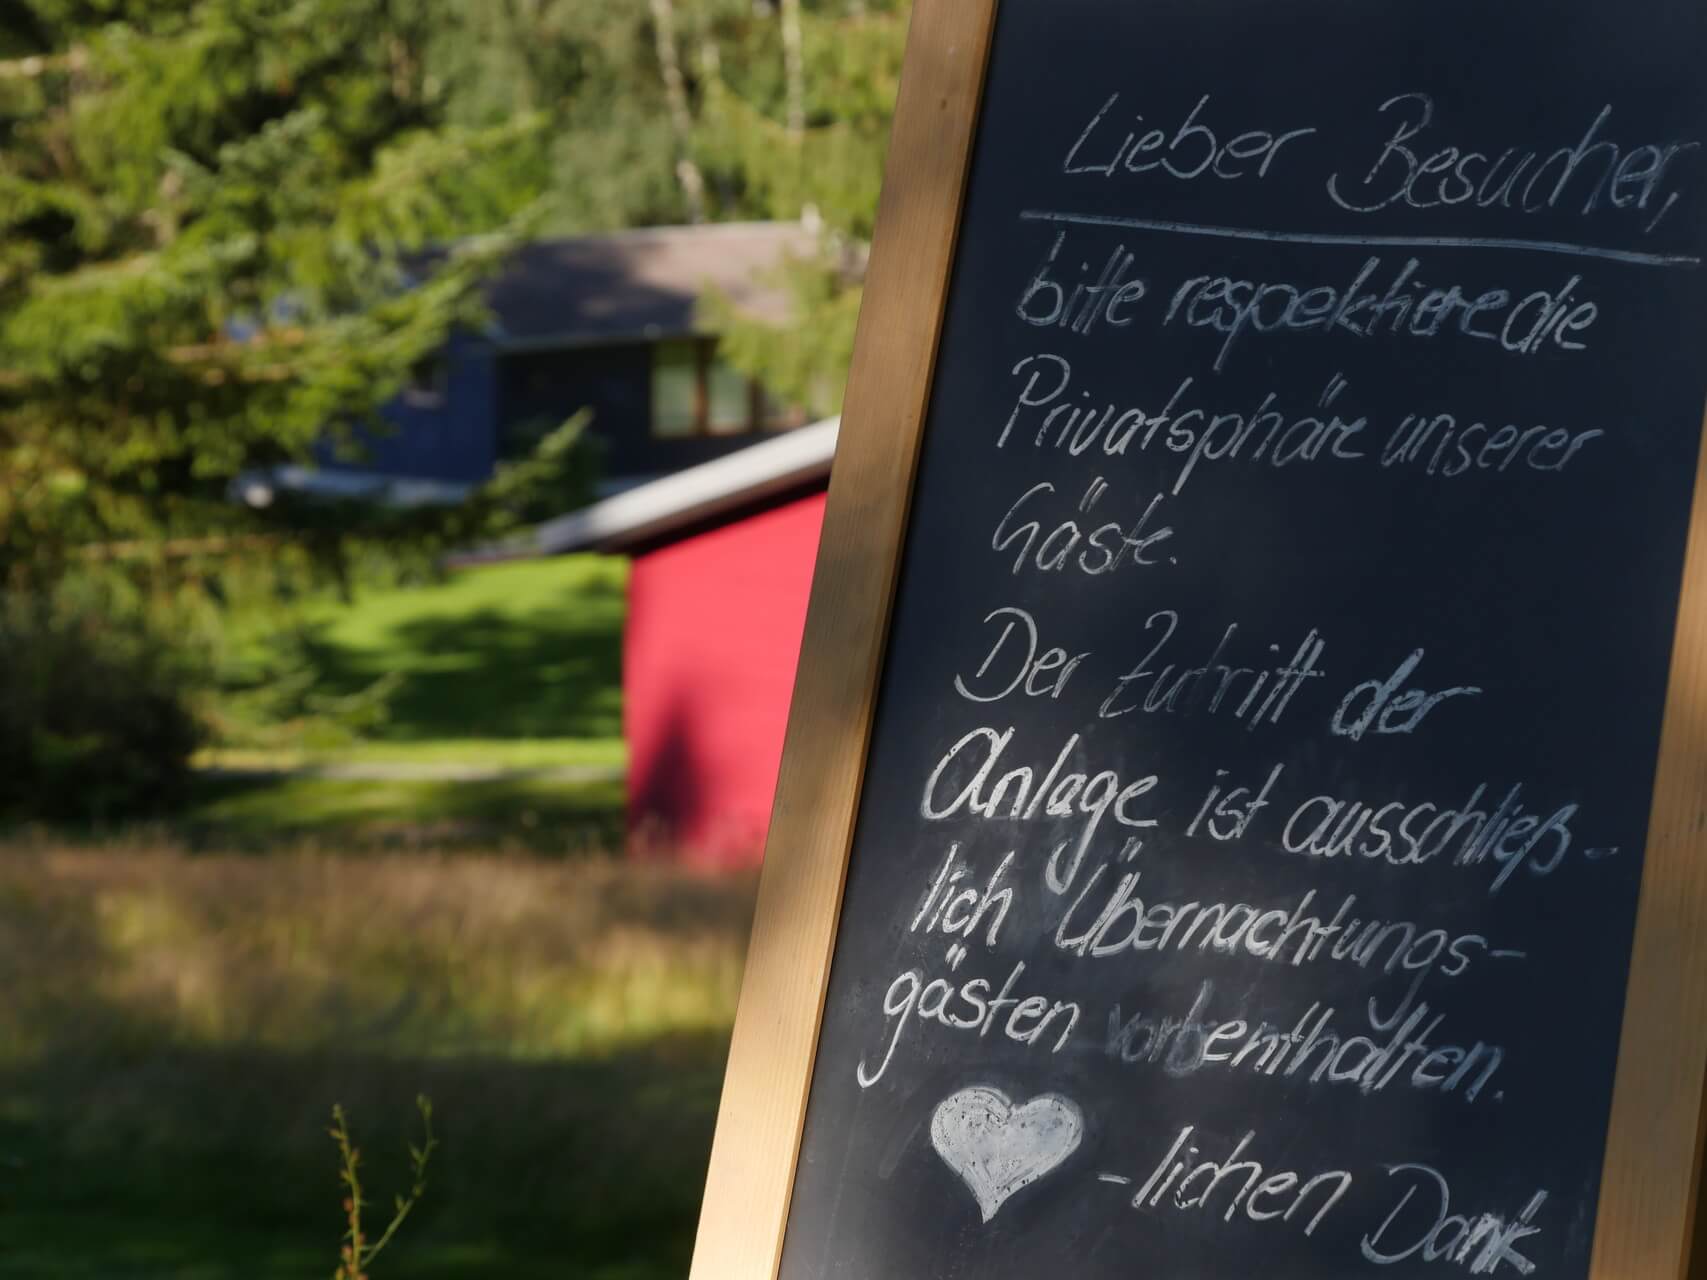 Lieber Besucher,
bitte respektiere die
Privatsphäre unserer
Gäste.
Der Zutritt der
Anlage ist ausschließ-
lich Übernachtungs-
gästen vorbenthalten.
-lichen Dank